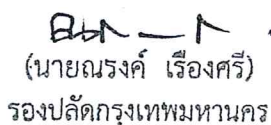 (นายณรงค์ เรืองศรี)
รองปลัดกรุงเทพมหานคร